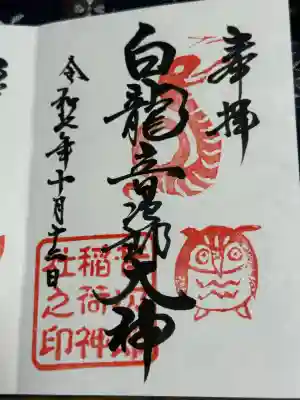 奉拝
白龍音次郎大神
令和七年十月十二日
稲荷神
社之印